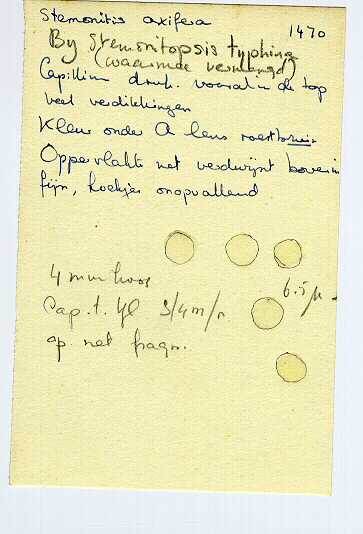 Stemonitis axifera
1470
By Stemonitopsis typhina
(waarmee vermengd)
Capillitium donk. vooral in de top
veel verdikkingen
Kleur onder A lens roestbruin
Oppervlakte net verdwijnt bovenin
fijn, hoekjes onopvallend
4 mm hoog
6.5 μ
Cap. t. 3/4 m/r
op. net fragm.